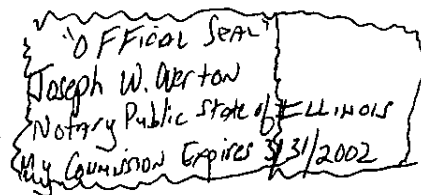 "OFFICIAL SEAL"
Joseph W. Overton
Notary Public State of ILLINOIS
My Commission Expires 3/31/2002